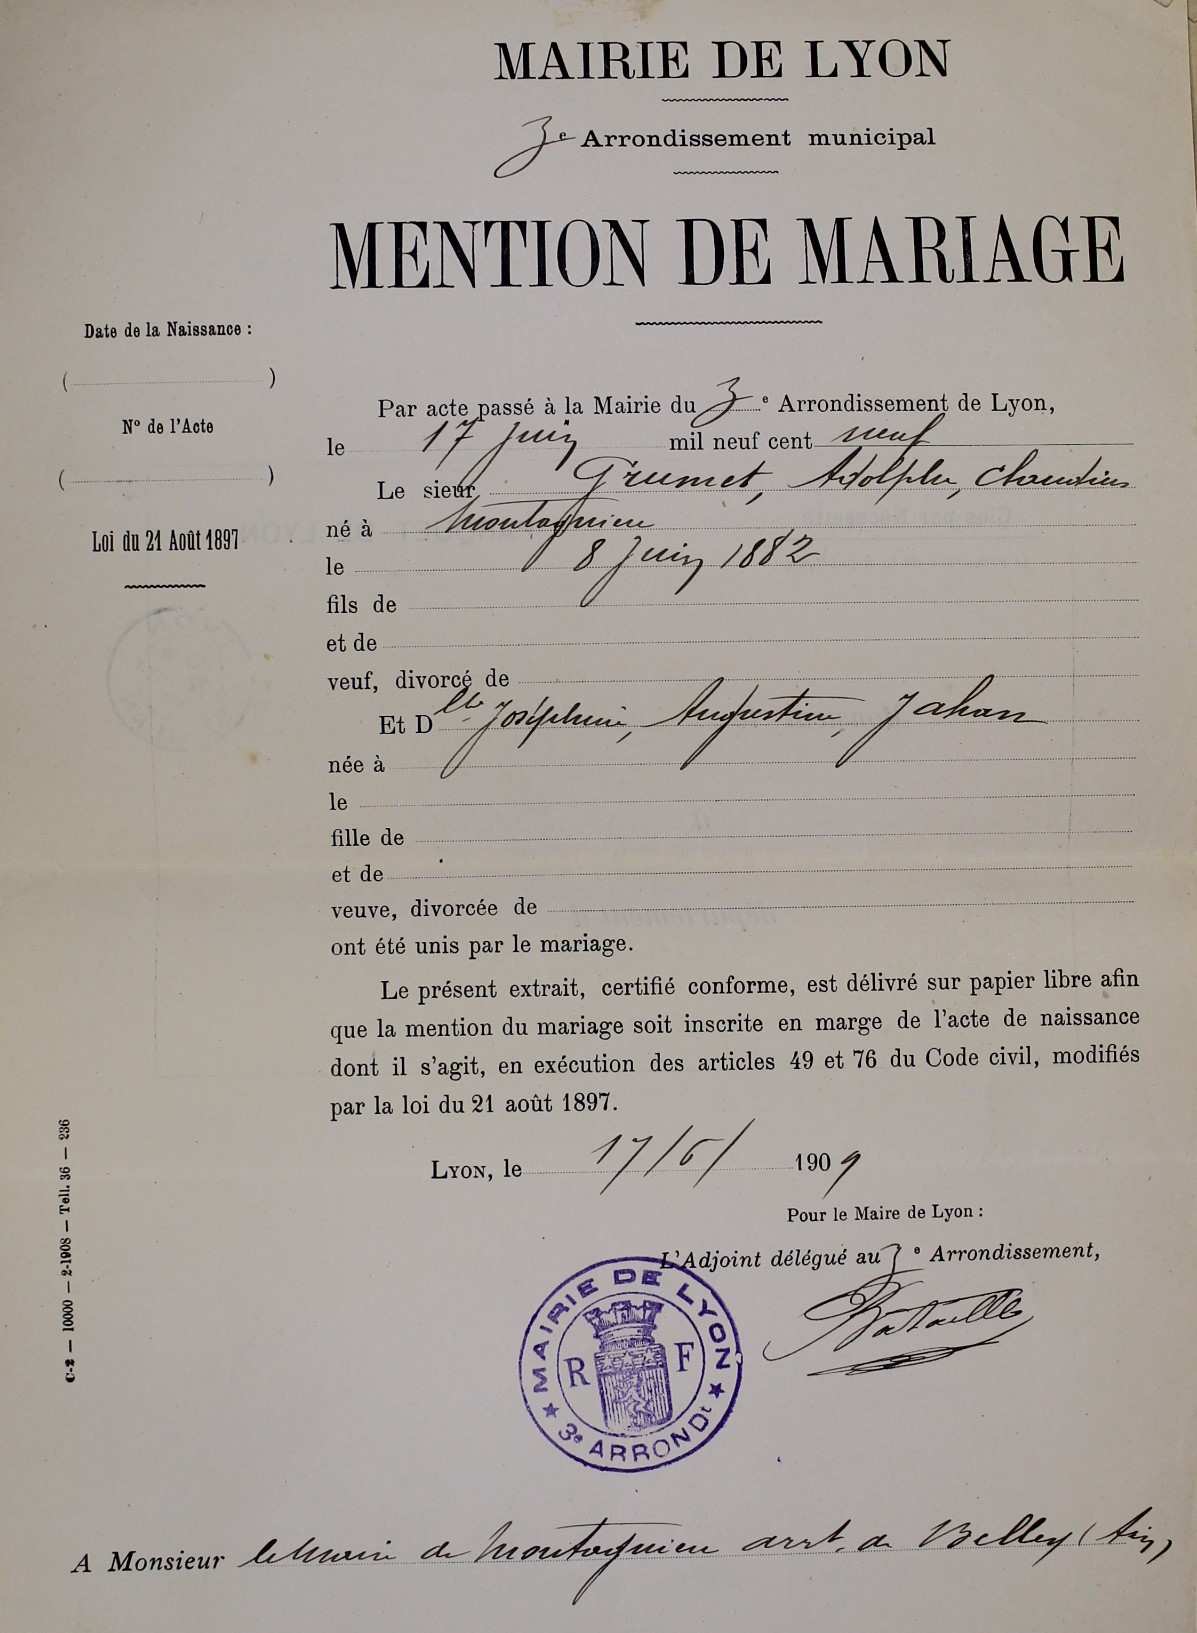 MAIRIE DE LYON
3e Arrondissement municipal
MENTION DE MARIAGE
Date de la Naissance :
( )
N° de l'Acte
( )
Loi du 21 Août 1897
Par acte passé à la Mairie du 3e Arrondissement de Lyon,
le 17 Juin mil neuf cent neuf
Le sieur Grumet, Adolphe, Claudius
né à Montagnieu
le 8 Juin 1882
fils de
et de
veuf, divorcé de
Et Dlle Joséphine, Augustine, Jahan
née à
le
fille de
et de
veuve, divorcée de
ont été unis par le mariage.
Le présent extrait, certifié conforme, est délivré sur papier libre afin
que la mention du mariage soit inscrite en marge de l'acte de naissance
dont il s'agit, en exécution des articles 49 et 76 du Code civil, modifiés
par la loi du 21 août 1897.
LYON, le 17/6/ 1909
Pour le Maire de Lyon :
L'Adjoint délégué au 3e Arrondissement,
Bataille
MAIRIE DE LYON
R F
3e ARRONDt
C-2 — 10000 — 2-1908 — Tell. 36 — 236
A Monsieur le Maire de Montagnieu arrt. de Belley (Ain)